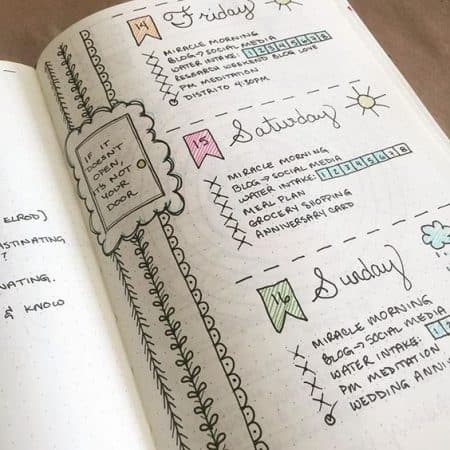 ELROD)
?
& KNOW
IF IT
DOESN'T
OPEN,
IT'S NOT
YOUR
DOOR
14 Friday
MIRACLE MORNING
BLOG → SOCIAL MEDIA
WATER INTAKE: 1 2 3 4 5 6 7 8
RESEARCH WEEKEND BLOG LOVE
PM MEDITATION
DISTRITO 4:30PM
15 Saturday
MIRACLE MORNING
BLOG → SOCIAL MEDIA
WATER INTAKE: 1 2 3 4 5 6 7 8
MEAL PLAN
GROCERY SHOPPING
ANNIVERSARY CARD
16 Sunday
MIRACLE MORNING
BLOG → SOCIAL MEDIA
WATER INTAKE: 1 2
PM MEDITATION
WEDDING ANNI